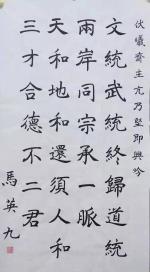 伏犧齋主亢乃堅即興吟
文統武統終歸道統
兩岸同宗承一脈
天和地和還須人和
三才合德不二君
馬英九